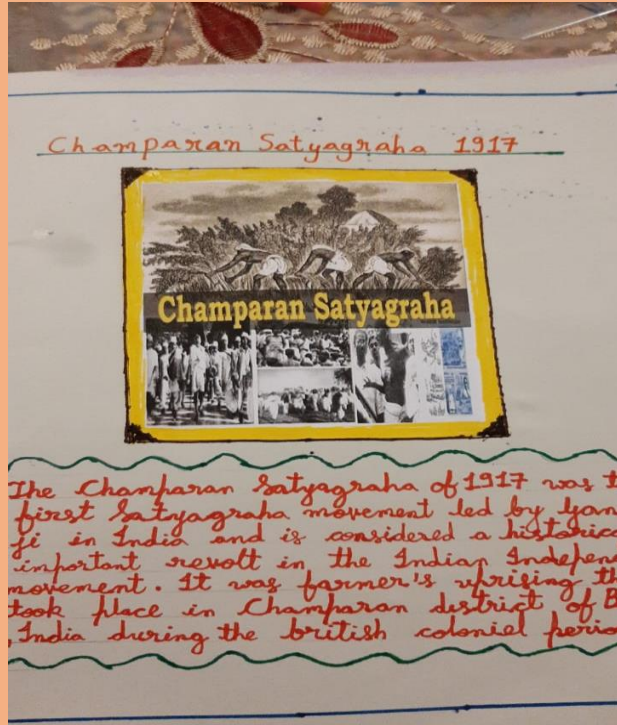 Champaran Satyagraha 1917
Champaran Satyagraha
The Champaran Satyagraha of 1917 was t
first Satyagraha movement led by Gan
ji in India and is considered a historica
important revolt in the Indian Indepen
movement. It was farmer's uprising th
took place in Champaran district of B
, India during the british coloniel perio